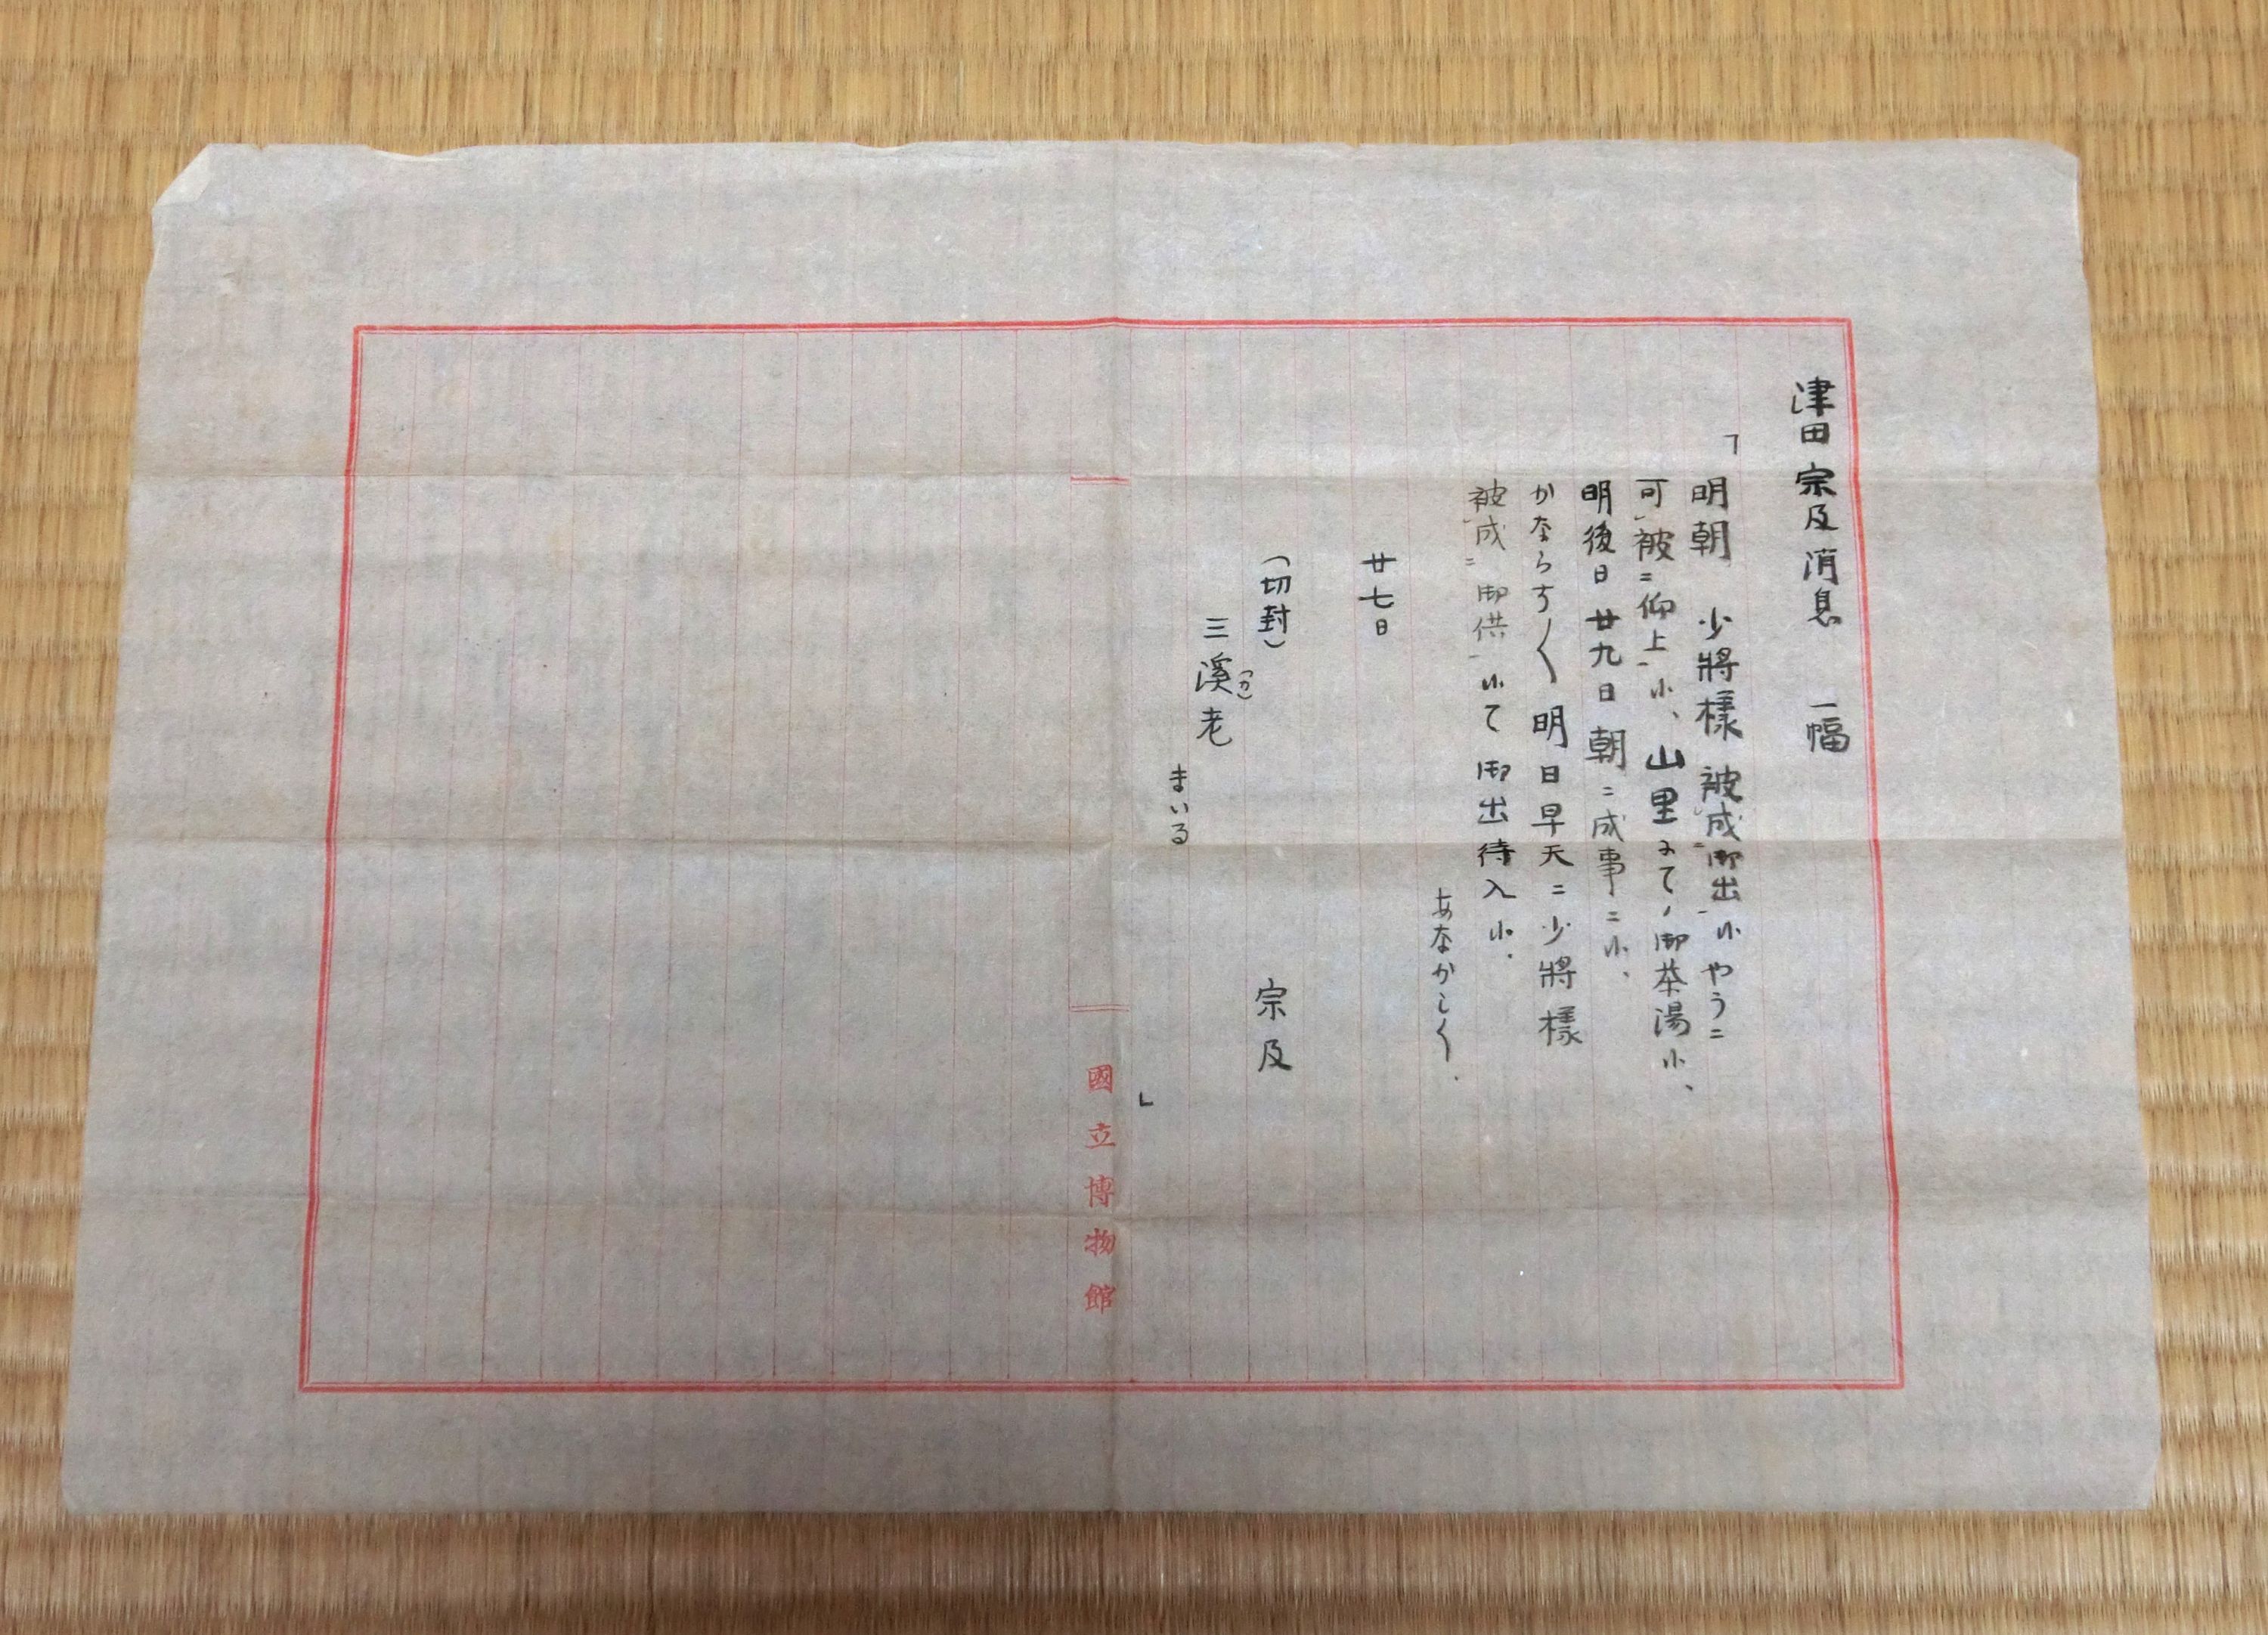 津田宗及消息 一幅
「明朝 少將樣 被㆑成㆓御出㆒候やうニ
可㆑被㆓仰上㆒候、山里にて御茶湯候、
明後日廿九日朝ニ成事ニ候、
かならすく明日早天ニ少將樣
被㆑成㆓御供㆒候て御出待入候。
あなかしく。
廿七日
(切封) 宗及
三溪(カ)老
まいる 」
國立博物館